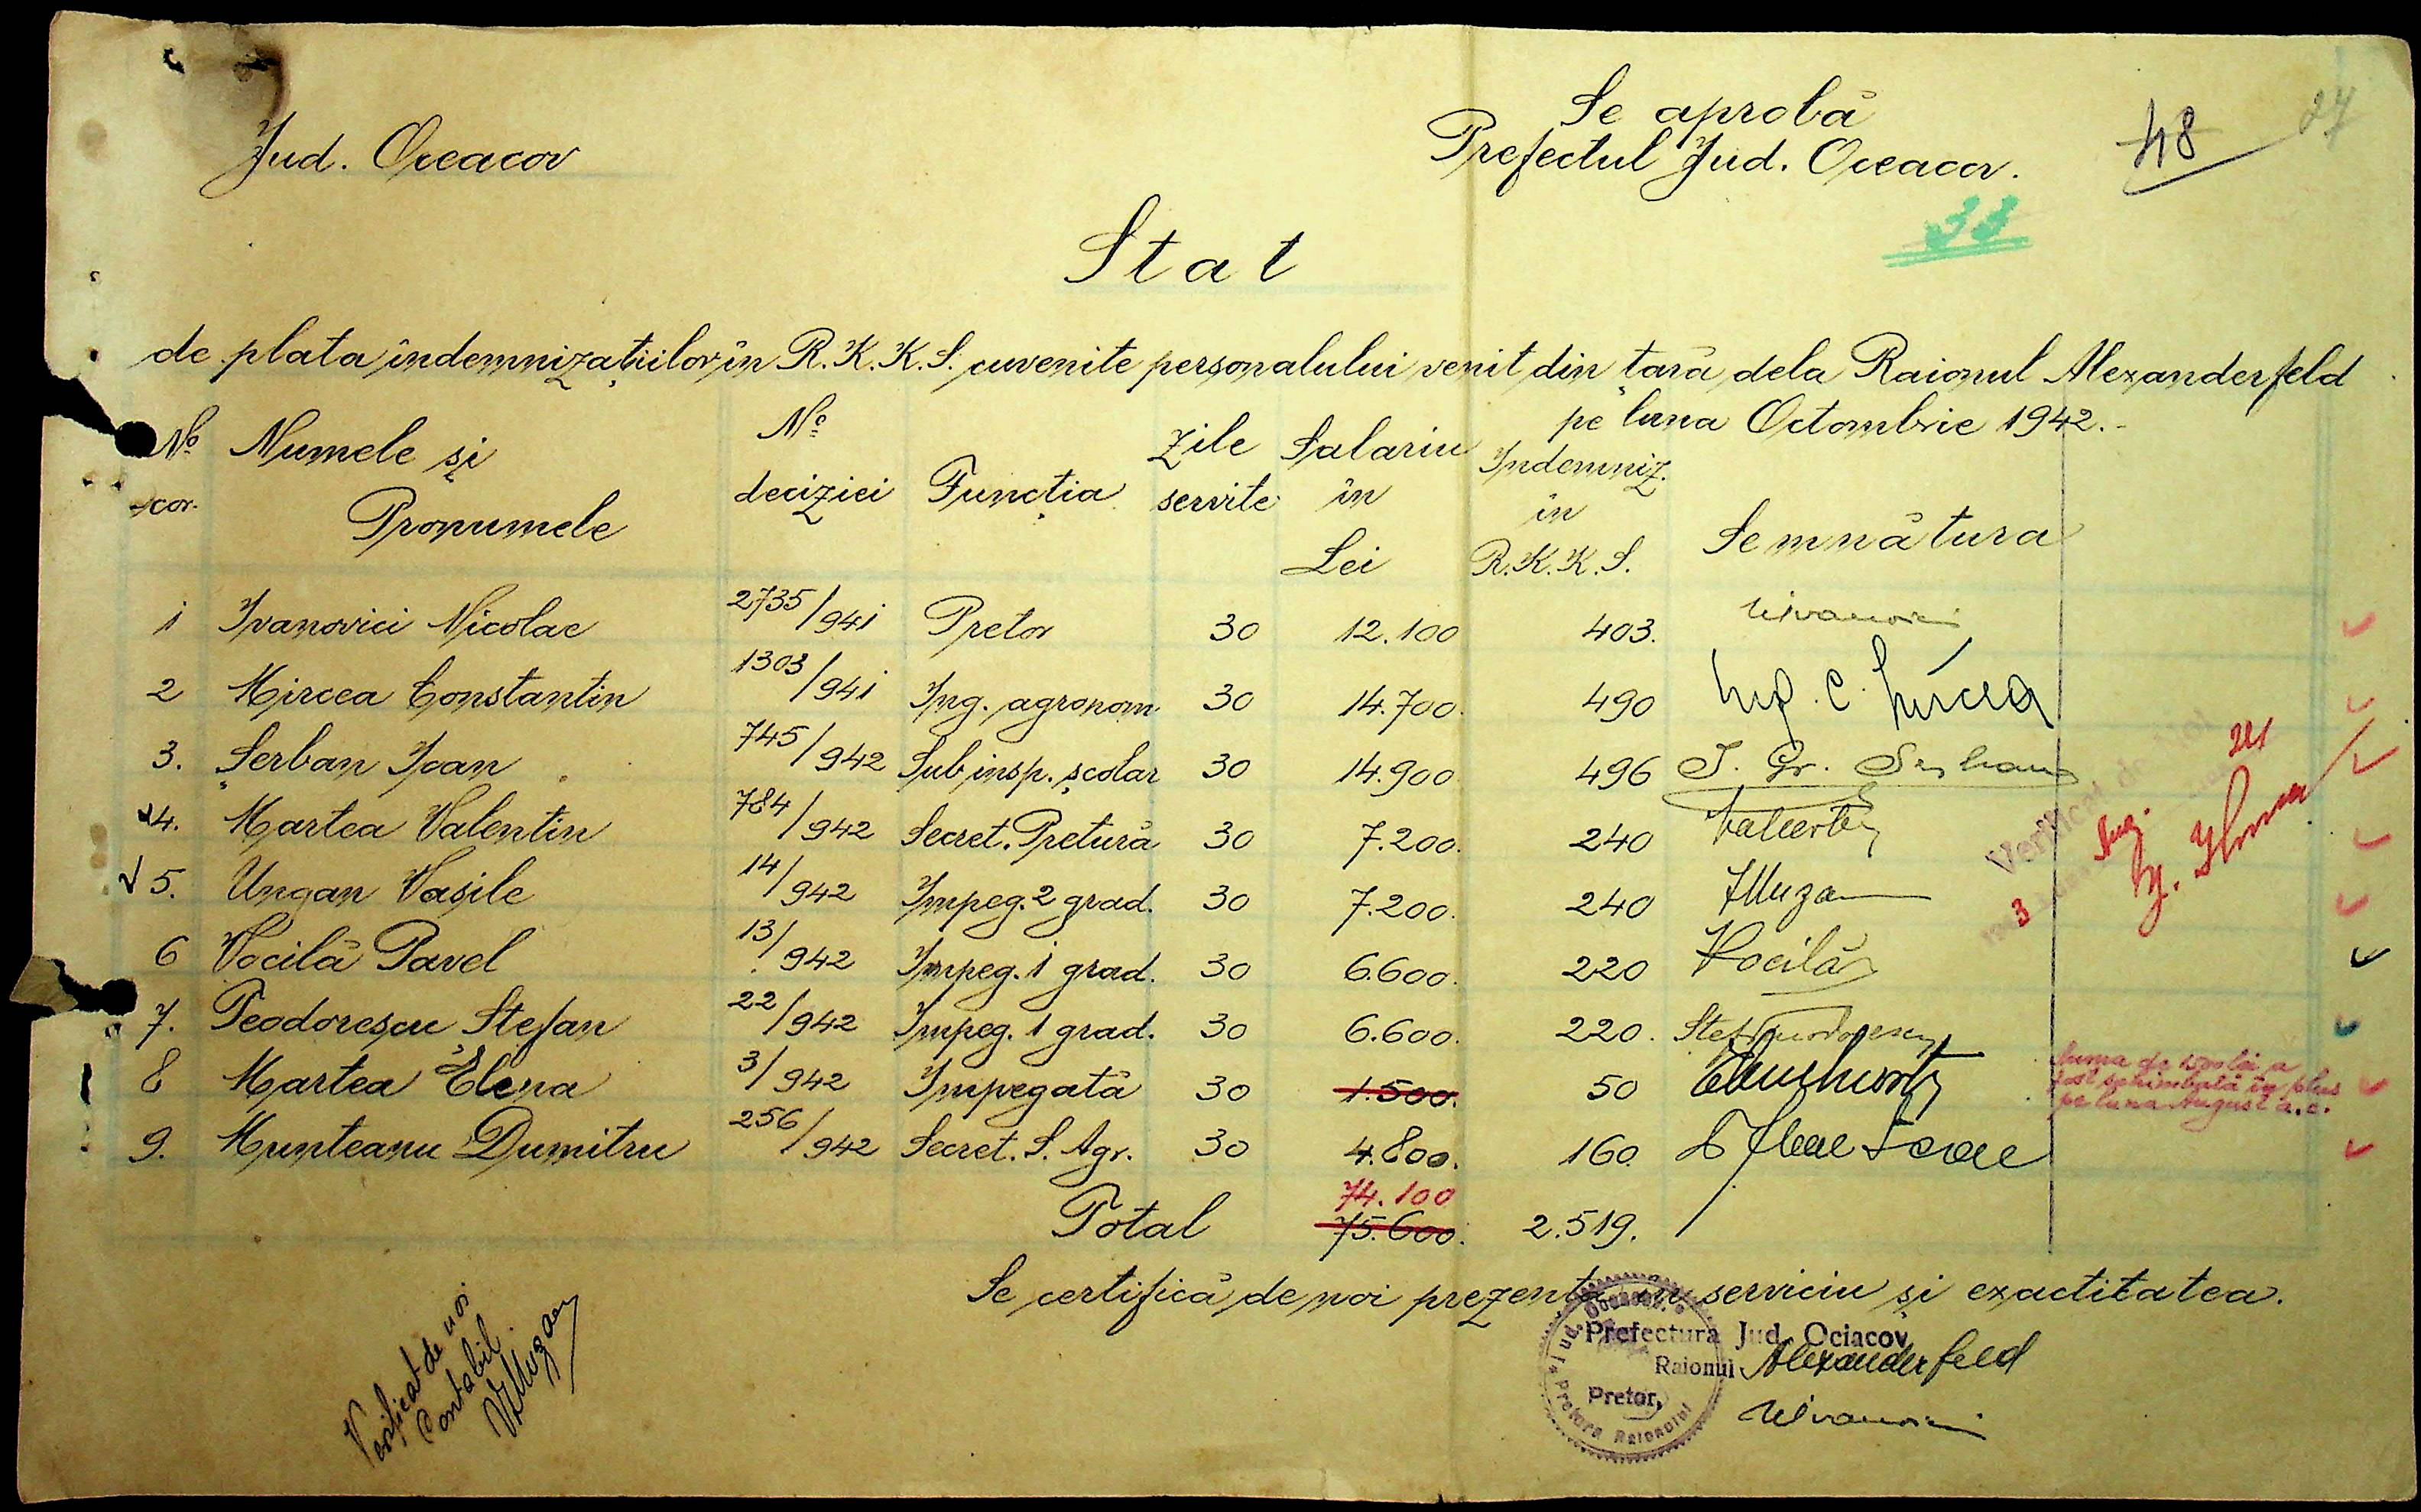 Jud. Oceacov
Se aprobă
Prefectul Jud. Oceacov.
48
27
33
Stat
de plata îndemnizațiilor în R.K.K.S. cuvenite personalului venit din țară dela Raionul Alexanderfeld
pe luna Octombrie 1942.-
No cor. Numele și Pronumele No deciziei Funcția Zile servite Salariu în Lei Indemniz. în R.K.K.S. Semnătura
1 Ivanovici Nicolae 2735/941 Pretor 30 12.100 403.
2 Mircea Constantin 1303/941 Ing. agronom. 30 14.700. 490 Ing. C. Mircea
3. Șerban Ioan 745/942 Sub insp. școlar 30 14.900 496 I. Gr. Șerban
4. Martea Valentin 784/942 Secret. Pretură 30 7.200. 240
5. Ungan Vasile 14/942 Impeg. 2 grad. 30 7.200. 240
6 Vocilă Pavel 13/942 Impeg. 1 grad. 30 6.600. 220 Vocilă
7. Teodorescu Ștefan 22/942 Impeg. 1 grad. 30 6.600. 220.
8 Martea Elena 3/942 Impegată 30 1.500. 50
9. Munteanu Dumitru 256/942 Secret. S. Agr. 30 4.800. 160.
74.100
Total 75.600. 2.519.
Verificat de
3
Suma de 1500 lei a
fost schimbată în plus
pe luna August a.c.
Se certifică de noi prezența în serviciu și exactitatea.
Prefectura Jud. Ociacov
Raionul Alexanderfeld
Pretor,
Pretura Raionului
Verificat de noi
Contabil